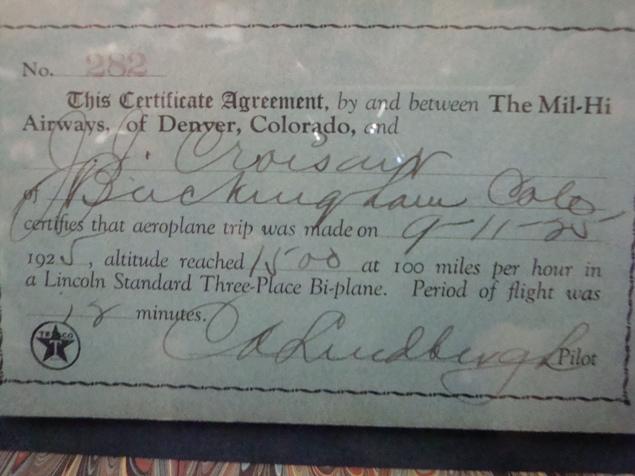 No. 282
This Certificate Agreement, by and between The Mil-Hi
Airways, of Denver, Colorado, and
J. J. Croissant
of Buckingham Colo
certifies that aeroplane trip was made on 9-11-25
1925, altitude reached 1500 at 100 miles per hour in
a Lincoln Standard Three-Place Bi-plane. Period of flight was
12 minutes.
TEXACO
T
C A Lindbergh Pilot